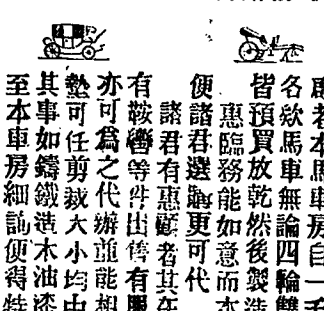 啟者本馬車房自一千
名欵馬車無論四輪雙
皆預買放乾然後製造
惠臨務能如意而本
便諸君選購更可代
諸君有惠顧者其在
有鞍轡等件出售有願
亦可為之代辦並能相
墊可任剪裁大小均由
其事如鑄鐵造木油漆
至本車房細詢便得特